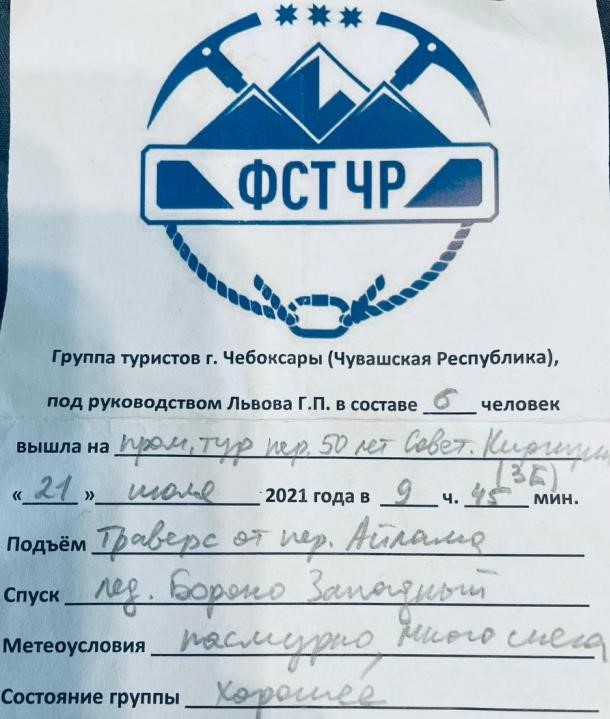 ФСТ ЧР
Группа туристов г. Чебоксары (Чувашская Республика),
под руководством Львова Г.П. в составе 6 человек
вышла на пром. тур пер. 50 лет Совет. Киргизии
(3Б)
«21» июля 2021 года в 9 ч. 45 мин.
Подъём Траверс от пер. Айлама
Спуск лед. Бороко Западный
Метеоусловия пасмурно, много снега
Состояние группы хорошее